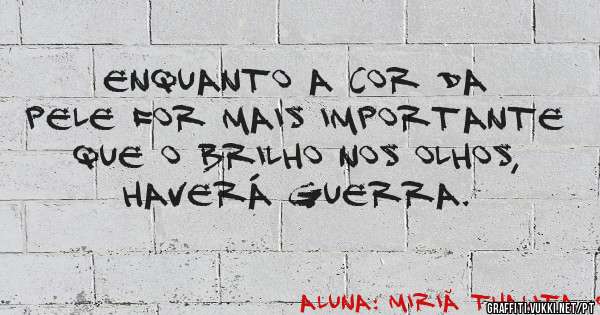 ENQUANTO A COR DA
PELE FOR MAIS IMPORTANTE
QUE O BRILHO NOS OLHOS,
HAVERÁ GUERRA.
ALUNA: MIRIÃ THALITA
GRAFFITI.VUKKI.NET/PT